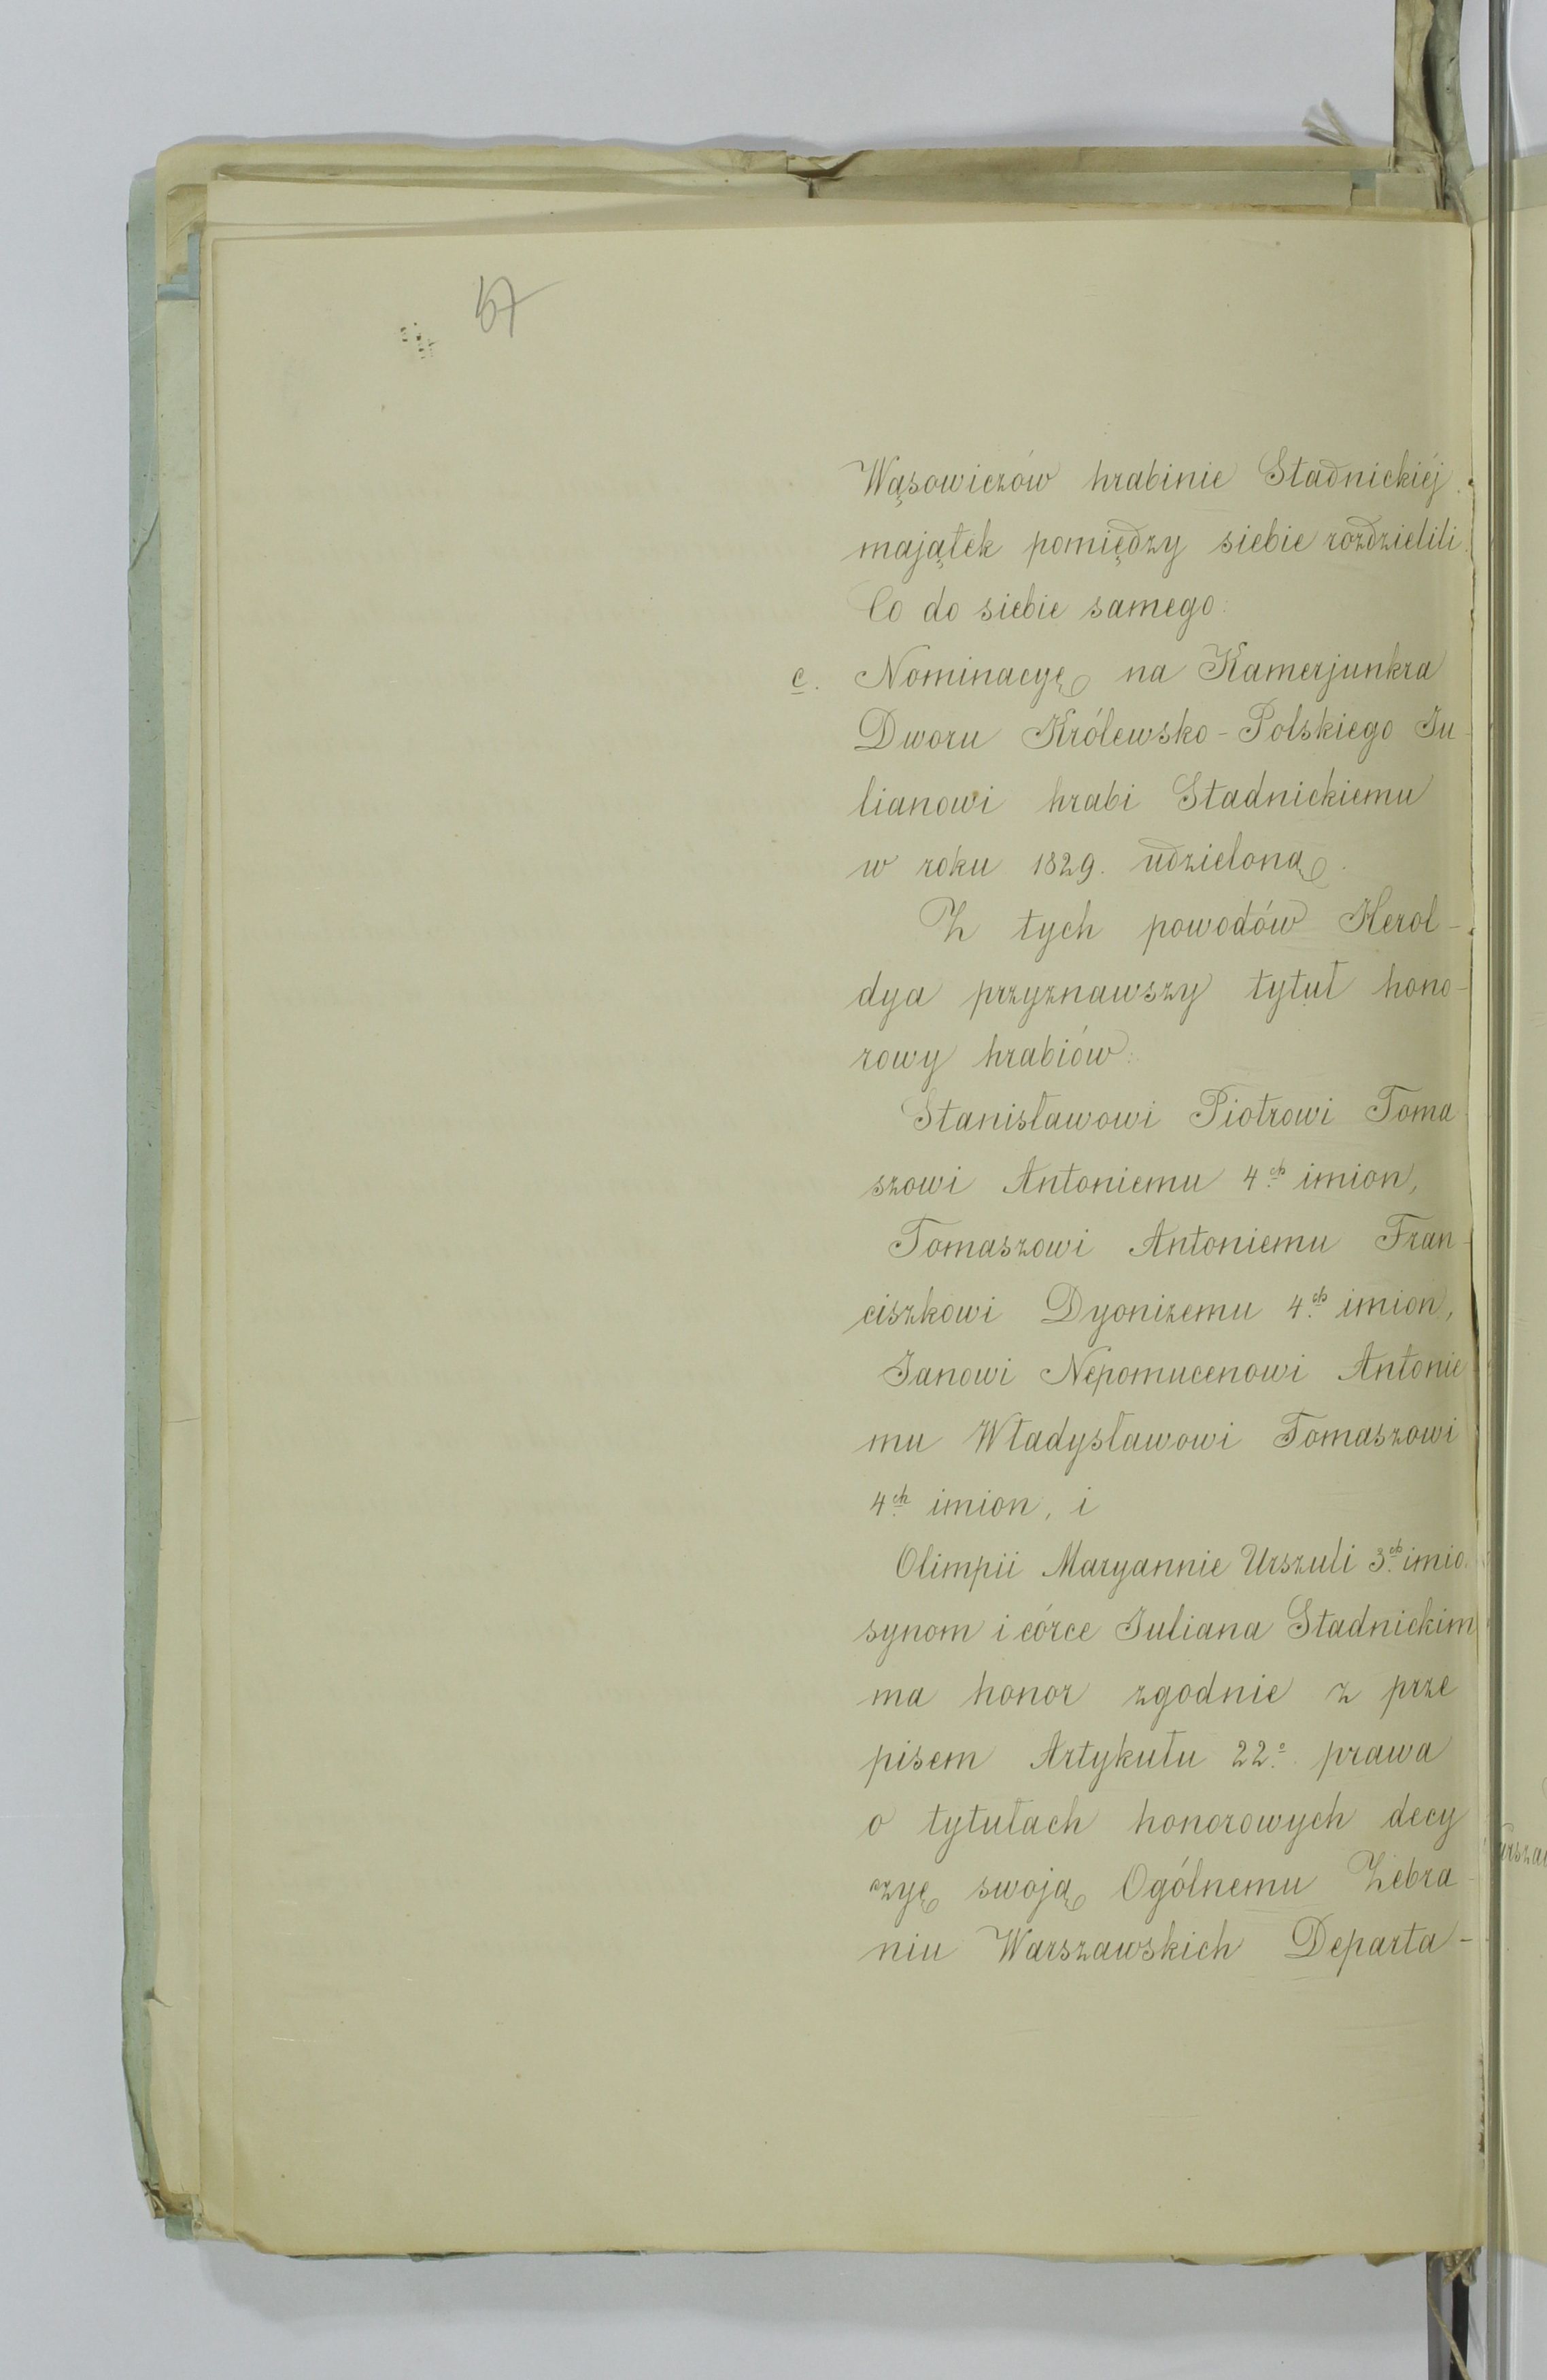 57
Wąsowiczów hrabinie Stadnickiéj
majątek pomiędzy siebie rozdzielili
Co do siebie samego:
c. Nominacyę na Kamerjunkra
Dworu Królewsko-Polskiego Ju-
lianowi hrabi Stadnickiemu
w roku 1829. udzieloną.
Z tych powodów Herol-
dya przyznawszy tytuł hono-
rowy hrabiów:
Stanisławowi Piotrowi Toma
szowi Antoniemu 4ch imion,
Tomaszowi Antoniemu Fran-
ciszkowi Dyonizemu 4ch imion,
Janowi Nepomucenowi Antonie
mu Władysławowi Tomaszowi
4ch imion, i
Olimpii Maryannie Urszuli 3ch imio
synom i córce Juliana Stadnickim
ma honor zgodnie z prze
pisem Artykułu 22o prawa
o tytułach honorowych decy
zyę swoją Ogólnemu Zebra-
niu Warszawskich Departa-